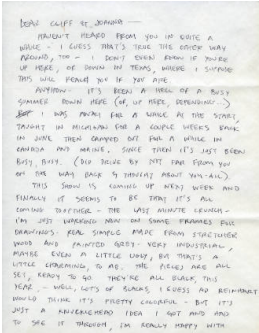 DEAR CLIFF ET. JOANNA —
HAVEN'T HEARD FROM YOU IN QUITE A
WHILE - I GUESS THAT'S TRUE THE OTHER WAY
AROUND, TOO - I DON'T EVEN KNOW IF YOU'RE
UP HERE, OR DOWN IN TEXAS, WHERE I SUPPOSE
THIS WILL REACH YOU IF YOU ARE
ANYHOW - IT'S BEEN A HELL OF A BUSY
SUMMER DOWN HERE (OR, UP HERE, DEPENDING..)
I WAS AWAY FOR A WHILE AT THE START,
TAUGHT IN MICHIGAN FOR A COUPLE WEEKS BACK
IN JUNE THEN CAMPED OUT FOR A WHILE IN
CANADA AND MAINE, SINCE THEN IT'S JUST BEEN
BUSY, BUSY. (DID DRIVE BY NOT FAR FROM YOU
ON THE WAY BACK & THOUGHT ABOUT YOU-ALL)
THIS SHOW IS COMING UP NEXT WEEK AND
FINALLY IT SEEMS TO BE THAT IT'S ALL
COMING TOGETHER - THE LAST MINUTE CRUNCH -
I'M JUST WORKING NOW ON SOME FRAMES FOR
DRAWINGS - REAL SIMPLE MADE FROM STRETCHER
WOOD AND PAINTED GREY - VERY INDUSTRIAL,
MAYBE EVEN A LITTLE UGLY, BUT THAT'S A
LITTLE CHARMING, TO ME. THE PIECES ARE ALL
SET, READY TO GO THEY'RE ALL BLACK, THIS
YEAR, - WELL, LOTS OF BLACKS, I GUESS AD REINHARDT
WOULD THINK IT'S PRETTY COLORFUL - BUT IT'S
JUST A KNUCKLEHEAD IDEA I GOT AND HAD
TO SEE IT THROUGH, I'M REALLY HAPPY WITH